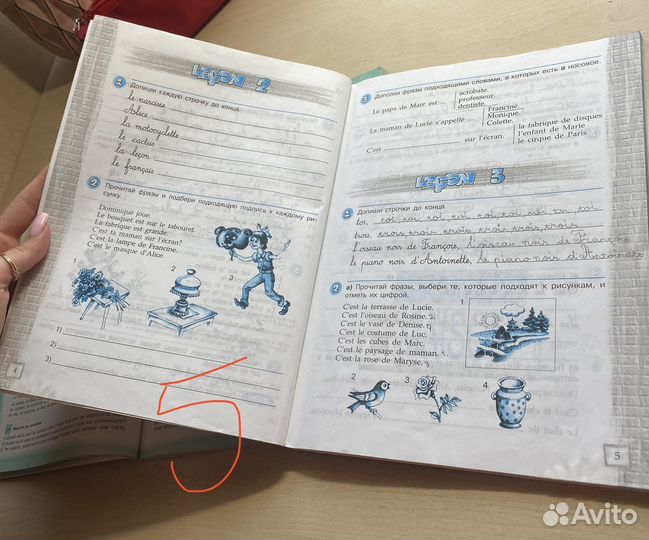 Leçon 2
1 Допиши каждую строчку до конца.
le narcisse
Alice
la motocyclette
le cactus
la leçon
le français
2 Прочитай фразы и подбери подходящую подпись к каждому ри-
сунку.
Dominique joue.
Le bouquet est sur le tabouret.
La fabrique est grande.
C'est la maman sur l'écran?
C'est la lampe de Francine.
C'est le masque d'Alice.
1
2
3
1)
2)
3)
4
5
5 Дополни фразы подходящими словами, в которых есть а носовое.
Le papa de Marc est ...
acrobate.
professeur.
dentiste.
La maman de Lucie s'appelle ...
Francine.
Monique.
Colette.
C'est
sur l'écran.
la fabrique de disques
l'enfant de Marie
le cirque de Paris
Leçon 3
1 Допиши строчки до конца.
toi,
trois,
l'oiseau noir de François, l'oiseau noir de François
le piano noir d'Antoinette, le piano noir d'Antoinette
2 а) Прочитай фразы, выбери те, которые подходят к рисункам, и
отметь их цифрой.
C'est la terrasse de Lucie.
C'est l'oiseau de Rosine. 2
C'est le vase de Denise. 4
C'est le costume de Luc.
C'est les cubes de Marc.
C'est le paysage de maman. 1
C'est la rose de Maryse. 3
1
2
3
4
5
Avito